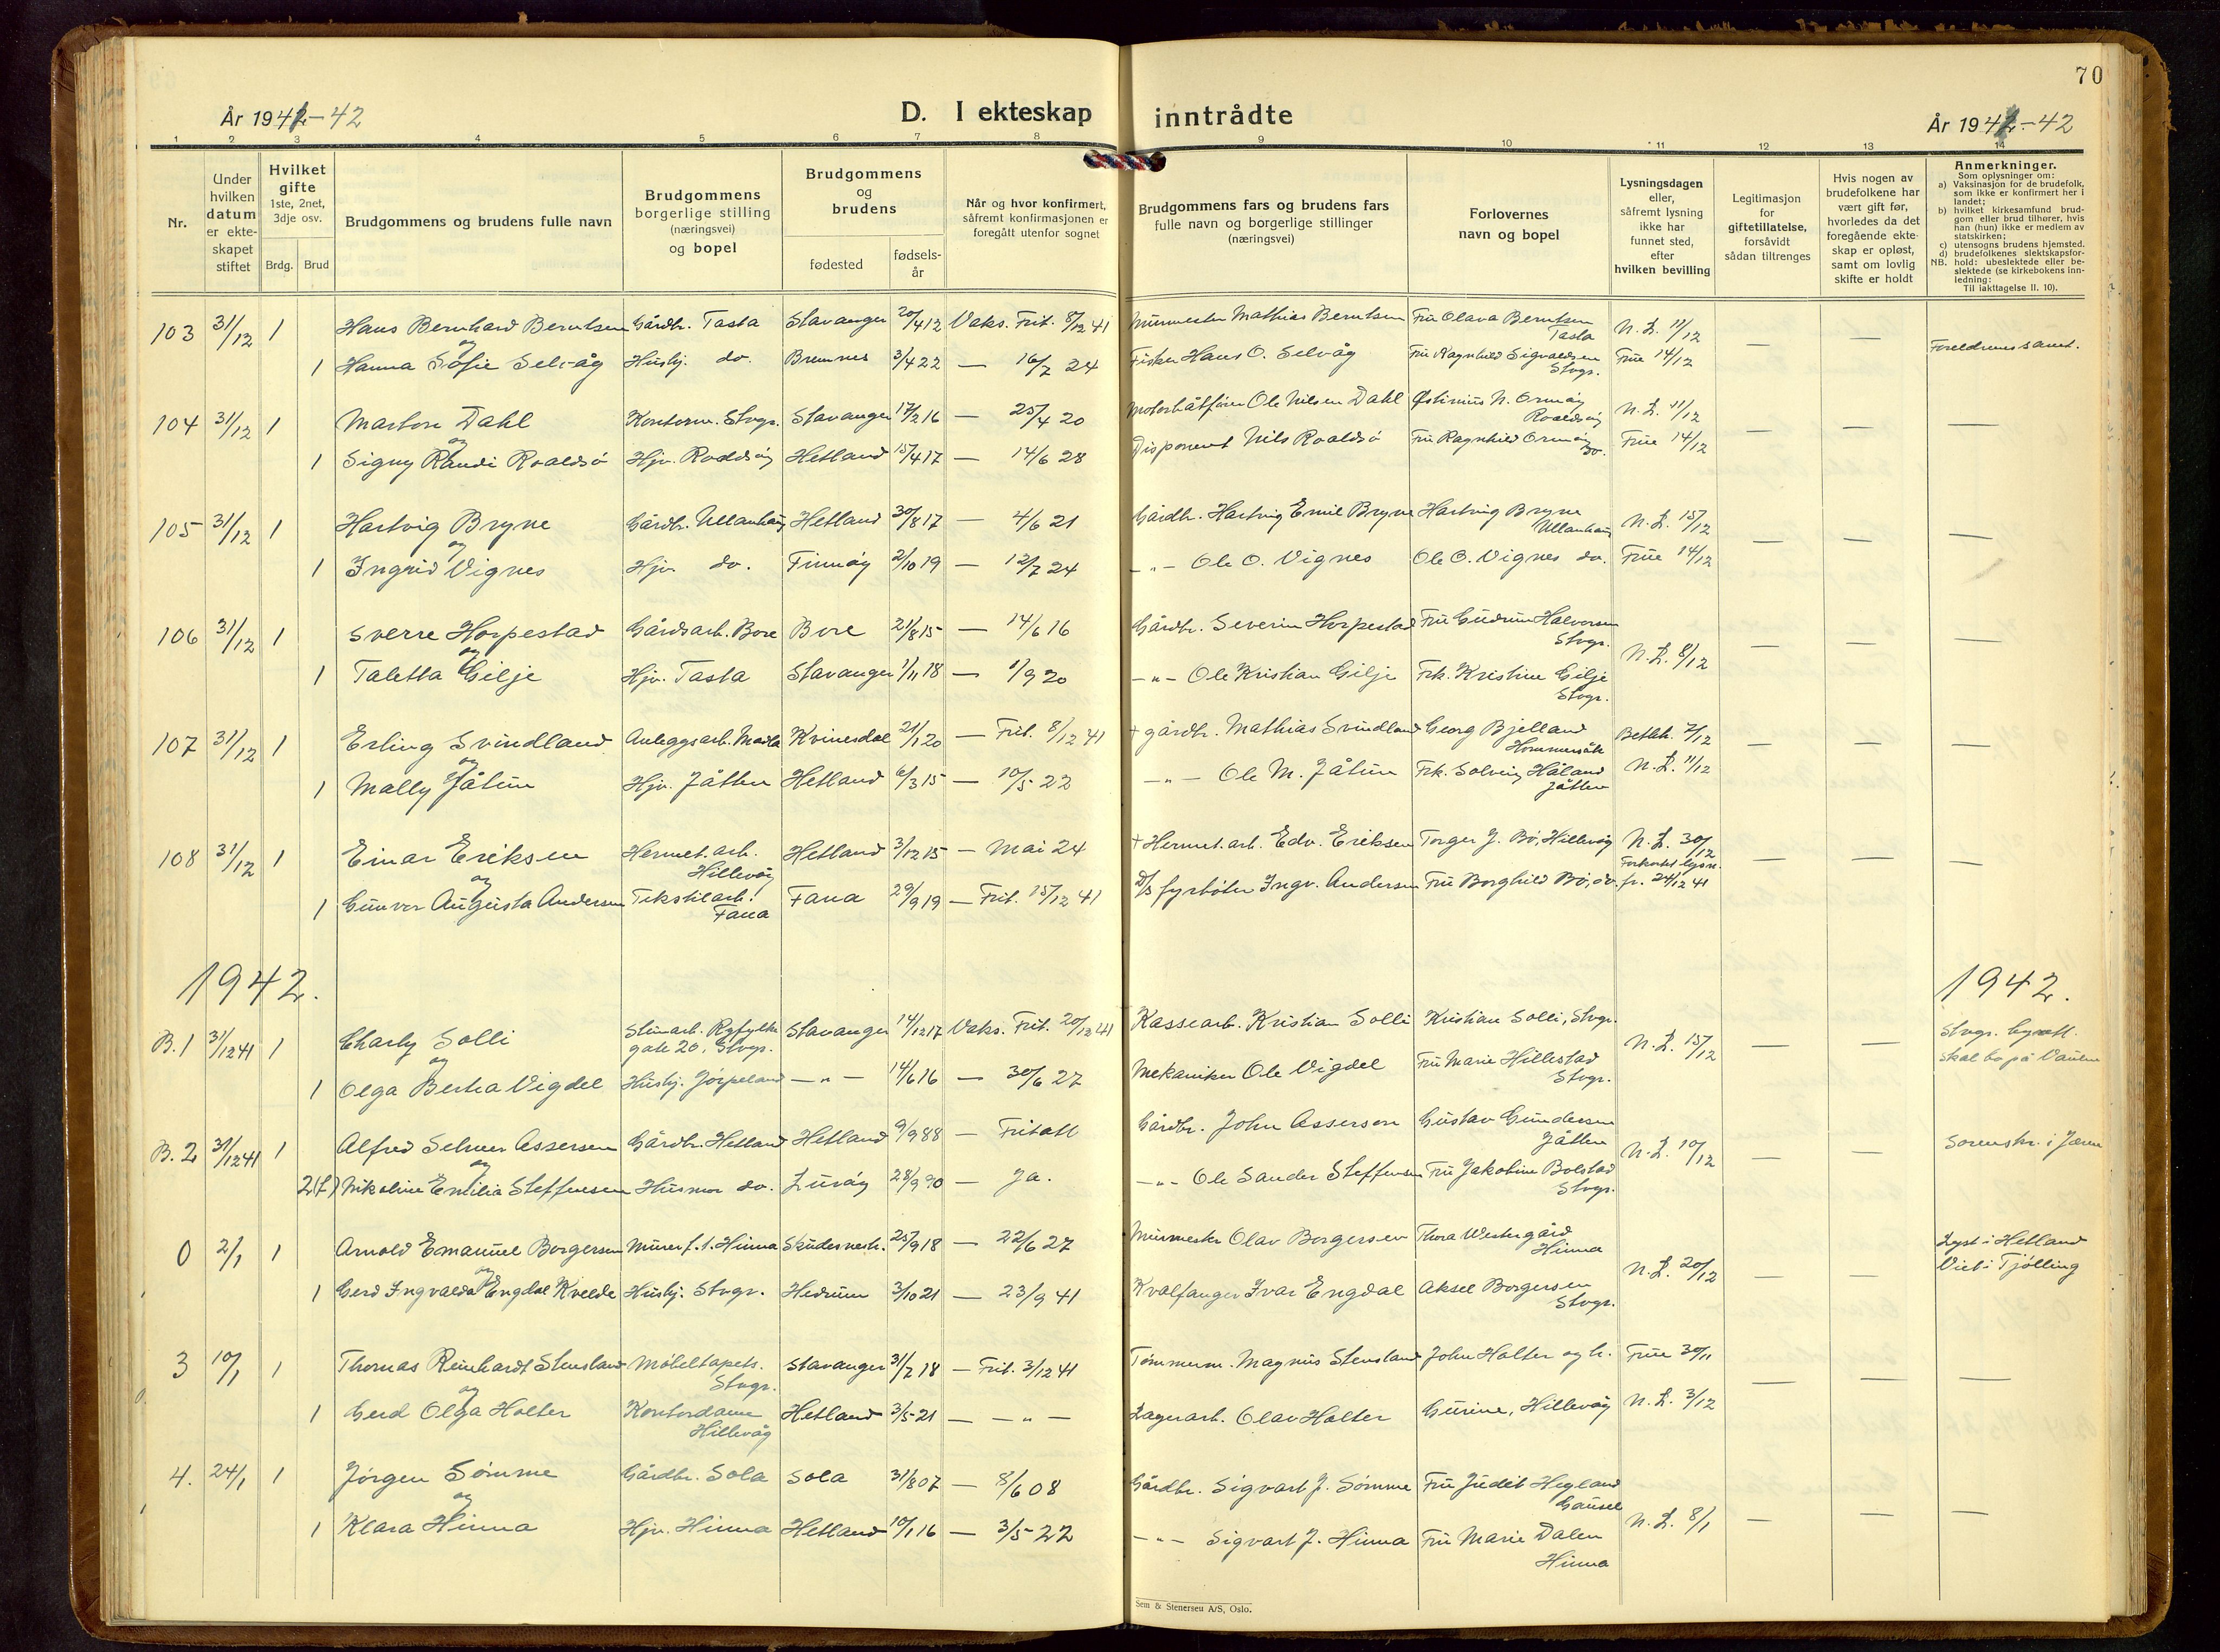 70
År 1941-42
D. I ekteskap inntrådte
År 1941-42
1 2 3 4 5 6 7 8 9 10 11 12 13 14
Nr.
Under hvilken datum er ekteskapet stiftet
Hvilket gifte 1ste, 2net, 3dje osv.
Brdg. Brud
Brudgommens og brudens fulle navn
Brudgommens borgerlige stilling (næringsvei) og bopel
Brudgommens og brudens
fødested
fødselsår
Når og hvor konfirmert, såfremt konfirmasjonen er foregått utenfor sognet
Brudgommens fars og brudens fars fulle navn og borgerlige stillinger (næringsvei)
Forlovernes navn og bopel
Lysningsdagen eller, såfremt lysning ikke har funnet sted, efter hvilken bevilling
Legitimasjon for giftetillatelse, forsåvidt sådan tiltrenges
Hvis nogen av brudefolkene har vært gift før, hvorledes da det foregående ekteskap er opløst, samt om lovlig skifte er holdt
Anmerkninger.
Som oplysninger om:
a) Vaksinasjon for de brudefolk, som ikke er konfirmert her i landet;
b) hvilket kirkesamfund brudgom eller brud tilhører, hvis han (hun) ikke er medlem av statskirken;
c) utensogns brudens hjemsted.
d) brudefolkenes slektskapsforhold: ubeslektede eller beslektede (se kirkebokens innledning:
NB.
Til iakttagelse II. 10).
103 31/12 1 Hans Bernhard Berntsen Gårdbr. Tasta Stavanger 20/4 12 Vaks. Frit. 8/12 41 Murmester Mathias Berntsen Fru Olava Berntsen Tasta N. L. 11/12 — — Foreldrenes samt.
og
1 Hanna Sofie Selvåg Hushj. do. Bremnes 3/4 22 — 16/7 24 Fisker Hans O. Selvåg Fru Ragnhild Sigvaldsen Stvgr. True 14/12
104 31/12 1 Martin Dahl Kontorm. Stvgr. Stavanger 17/2 16 — 25/4 20 Motorbåtfører Ole Nilsen Dahl Østinius N. Ormøy Roaldsøy N. L. 11/12 — — —
og
1 Signy Randi Roaldsø Hjv. Roaldsøy Hetland 15/4 17 — 14/6 28 Disponent Nils Roaldsø Fru Ragnhild Ormøy do. True 14/12
105 31/12 1 Hartvig Bryne Gårdbr. Ullanhaug Hetland 30/8 17 — 4/6 21 Gårdbr. Hartvig Emil Bryne Hartvig Bryne Ullanhaug N. L. 15/12 — — —
og
1 Ingrid Vignes Hjv. do. Finnøy 2/10 19 — 13/7 24 —"— Ole O. Vignes Ole O. Vignes do. True 14/12
106 31/12 1 Sverre Horpestad Gårdsarb. Bore Bore 21/8 15 — 14/6 16 Gårdbr. Severin Horpestad Fru Gudrun Halvorsen Stvgr. N. L. 8/12 — — —
og
1 Taletta Gilje Hjv. Tasta Stavanger 1/11 18 — 1/9 20 —"— Ole Kristian Gilje Frk. Kristine Gilje Stvgr.
107 31/12 1 Erling Svindland Anleggsarb. Madla Kvinesdal 21/1 20 — Frit. 8/12 41 + gårdbr. Mathias Svindland Georg Bjelland Hommersåk Bethk. 7/12 — — —
og
1 Mally Jåtun Hjv. Jåtten Hetland 6/3 15 — 10/5 22 —"— Ole M. Jåtun Frk. Solveig Håland Jåtten N. L. 11/12
108 31/12 1 Einar Eriksen Hermet. arb. Hillevåg Hetland 3/12 15 — Mai 24 + Hermet. arb. Edv. Eriksen Torger J. Bø, Hillevåg N. L. 30/12 — — —
og
1 Gunvor Augusta Andersen Tekstilarb. Fana Fana 29/9 19 — Frit. 15/12 41 D/S fyrbøter Ingv. Andersen Fru Borghild Bø, do. Forkortet lysn. fr. 24/12 41
1942. 1942.
B. 1 31/12 41 1 Charly Solli Stenarb. Ryfylkegate 20, Stvgr. Stavanger 14/12 17 Vaks. Frit. 20/12 41 Kassearb. Kristian Solli Kristian Solli, Stvgr. N. L. 15/12 — — Stvgr. byrett. Skal bo på Vaulen
og
1 Olga Berta Vigdel Hushj. Jørpeland —"— 14/6 16 — 30/6 27 Mekaniker Ole Vigdel Fru Marie Hillestad Stvgr.
B. 2 31/12 41 1 Alfred Selmer Assersen Gårdbr. Hetland Hetland 9/9 88 — Fritatt Gårdbr. John Asserson Gustav Gundersen Jåtten N. L. 10/12 — — Sorenskr. i Jæren
og
2(f) Nikoline Emilia Steffensen Husmor do. Lurøy 28/9 90 — Ja. —"— Ole Sander Steffensen Fru Jakobine Bolstad Stvgr.
0 2/1 1 Arnold Emanuel Borgersen Murer f. t. Hinna Skudeneshv. 25/9 18 — 22/6 27 Murmester Olav Borgersen Thora Westergård Hinna N. L. 20/12 — — Lyst i Hetland Viet i Tjølling
og
1 Gerd Ingvalda Engdal Kvelde Hushj. Stvgr. Hedrum 3/10 21 — 23/9 41 Kvalfanger Ivar Engdal Aksel Borgersen Stvgr.
3 10/1 1 Thomas Reinhardt Stensland Møbeltapets. Stvgr. Stavanger 31/7 18 — Frit. 3/12 41 Tømmerm. Magnus Stensland John Holter og h. True 30/11 — — —
og
1 Gerd Olga Holter Kontordame Hillevåg Hetland 3/5 21 — —"— Lagerarb. Olav Holter Gurine, Hillevåg N. L. 3/12
4. 24/1 1 Jørgen Sømme Gårdbr. Sola Sola 31/8 07 — 8/6 08 Gårdbr. Sigvart J. Sømme Fru Judit Hegland Gausel N. L. 8/1 — — —
og
1 Klara Hinna Hjv. Hinna Hetland 10/1 16 — 3/5 22 —"— Sigvart J. Hinna Fru Marie Dalen Hinna
Sem & Stenersen A/S, Oslo.